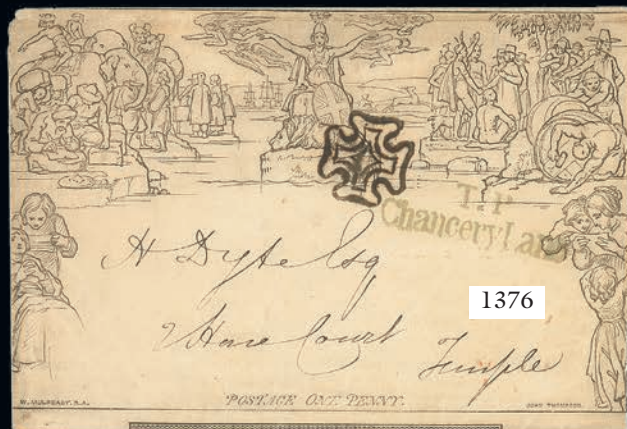 T.P
Chancery Lane
H Dyte Esq
1376
2 Hare Court
Temple
W. MULREADY. R.A.
POSTAGE ONE PENNY.
JOHN THOMPSON.